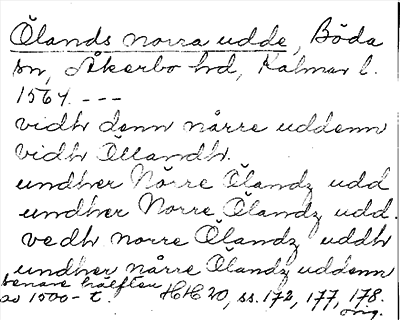 Ölands norra udde, Böda
sn, Åkerbo hd, Kalmar l.
1564. - - -
vidh denn nårre uddenn
vidh Öllandh.
undher Nörre Ölandz udd
undher Norre Ölandz udd.
vedh norre Ölandz uddh
undher nårre Ölandz uddenn
senare hälften
av 1500-t. HH 20, ss. 172, 177, 178.
orig.